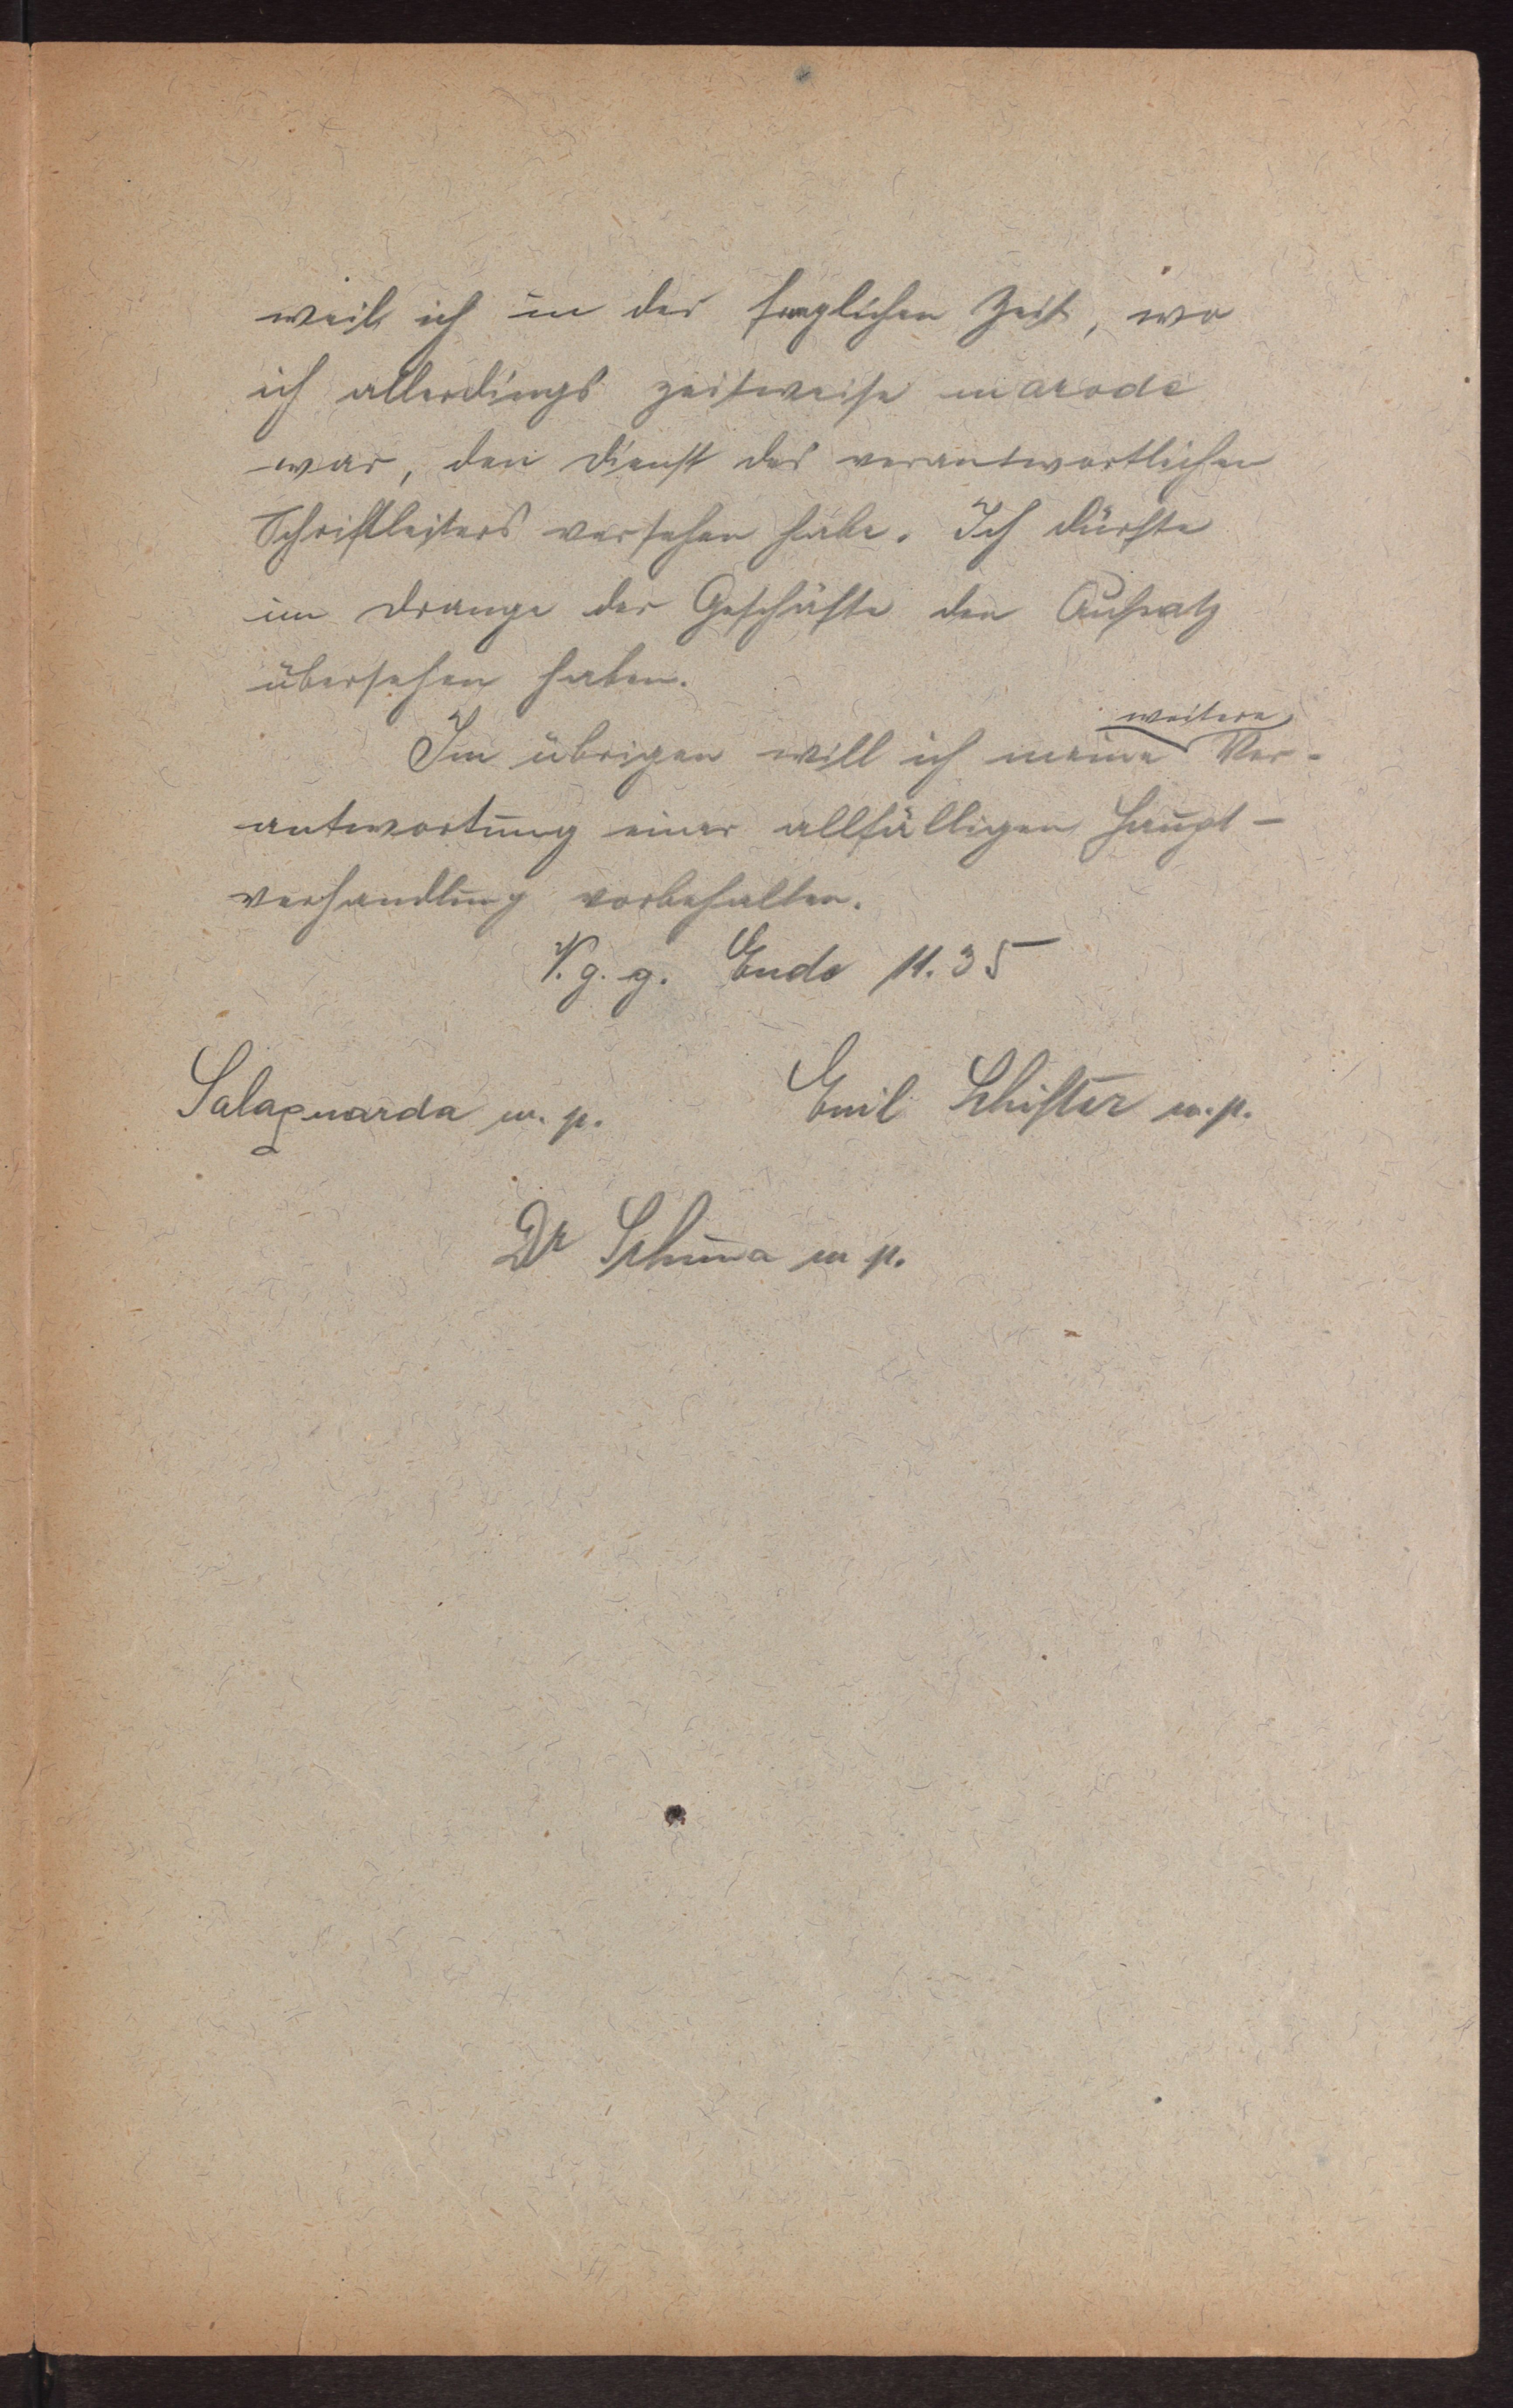 weil ich in der fraglichen Zeit, wo
ich allerdings zeitweise marode
war, den Dienst des verantwortlichen
Schriftleiters versehen habe. Ich dürfte
im Drange der Geschäfte den Aufsatz
übersehen haben.
weitere
Im übrigen will ich meine Ver-
antwortung einer allfälligen Haupt-
verhandlung vorbehalten.
V. g. g. Ende 11.35
Salaquarda m. p. Emil Schifter m. p.
Dr Schuma m p.